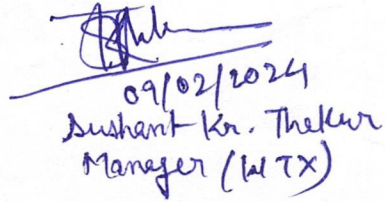 09/02/2024
Sushant Kr. Thakur
Manager (